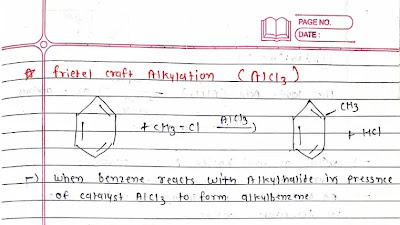 PAGE NO.
DATE:
frietel craft Alkylation (AlCl3)
+ CH3-Cl AlCl3 CH3 + HCl
-) When benzene reacts with Alkylhalide in pressnce
of catalyst AlCl3 to form alkylbenzene